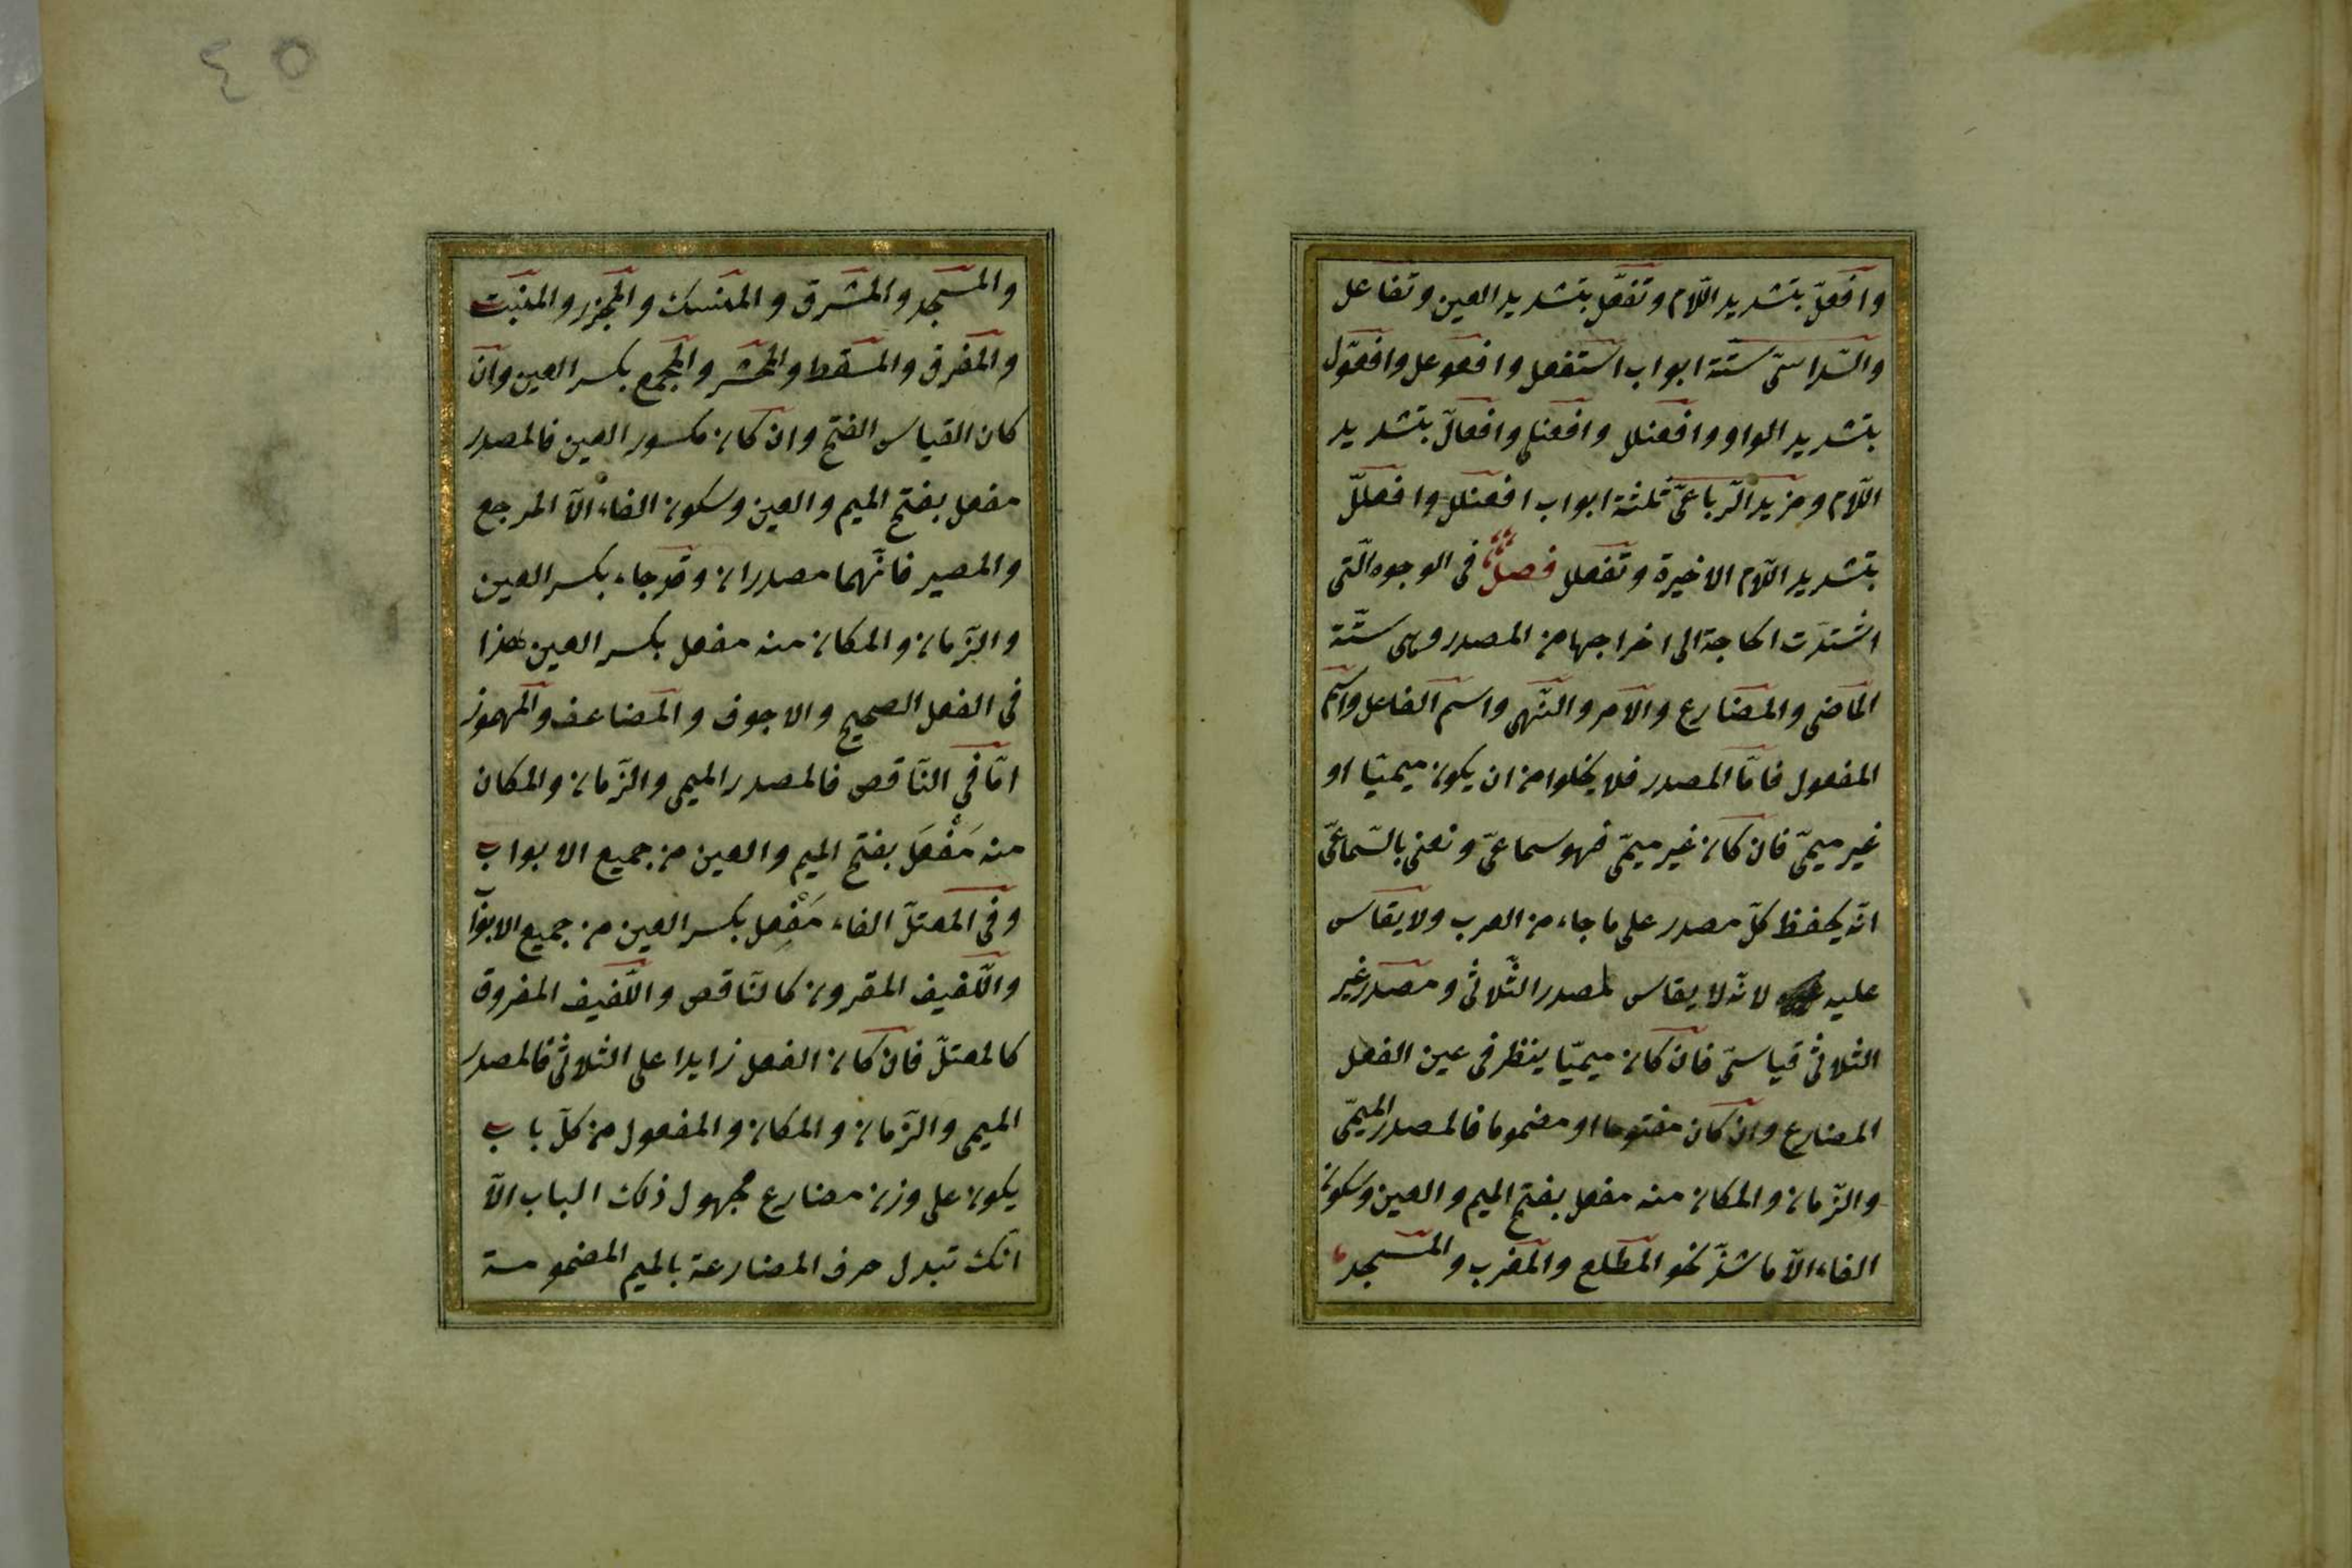 وافعلّ بتشديد اللّام وتفعّل بتشديد العين وتفاعل
والسّداسىّ ستّة ابواب استفعل وافعوعل وافعوّل
بتشديد الواو وافعنلل وافعنلى وافعالّ بتشديد
اللّام ومزيد الرّباعىّ ثلثة ابواب افعنلل وافعللّ
بتشديد اللّام الاخيرة وتفعلل فصلٌ فى الوجوه الّتى
اشتدّت الحاجة الى اخراجها من المصدر وهى ستّة
الماضى والمضارع والامر والنّهى واسم الفاعل واسم
المفعول فامّا المصدر فلا يخلوا من ان يكون ميميّا او
غير ميمىّ فان كان غير ميمىّ فهو سماعىّ ونعنى بالسّماعىّ
انّه يحفظ كلّ مصدر على ما جاء من العرب ولا يقاس
عليه لانّه لا يقاس لمصدر الثّلاثى ومصدر غير
الثلاثى قياسىّ فان كان ميميّا ينظر فى عين الفعل
المضارع وان كان مفتوحا او مضموما فالمصدر الميمىّ
والزّمان والمكان منه مفعل بفتح الميم والعين وسكون
الفاء الّا ما شذّ نحو المطلع والمغرب والمسجد
٤٥
والمسجد والمشرق والمنسك والمجزر والمنبت
والمفرق والمسقط والمحشر والمجمع بكسر العين وان
كان القياس الفتح وان كان مكسور العين فالمصدر
مفعل بفتح الميم والعين وسكون الفاء الّا المرجع
والمصير فانّهما مصدران وقد جاء بكسر العين
والزّمان والمكان منه مفعل بكسر العين هذا
فى الفعل الصحيح والاجوف والمضاعف والمهموز
امّا فى النّاقص فالمصدر الميمى والزّمان والمكان
منه مَفْعَل بفتح الميم والعين من جميع الابواب
وفى المعتلّ الفاء مَفْعِل بكسر العين من جميع الابواب
واللّفيف المقرون كالنّاقص واللّفيف المفروق
كالمعتلّ فان كان الفعل زايدا على الثلاثى فالمصدر
الميمى والزّمان والمكان والمفعول من كلّ باب
يكون على وزن مضارع مجهول ذلك الباب الّا
انّك تبدل حرف المضارعة بالميم المضمومة